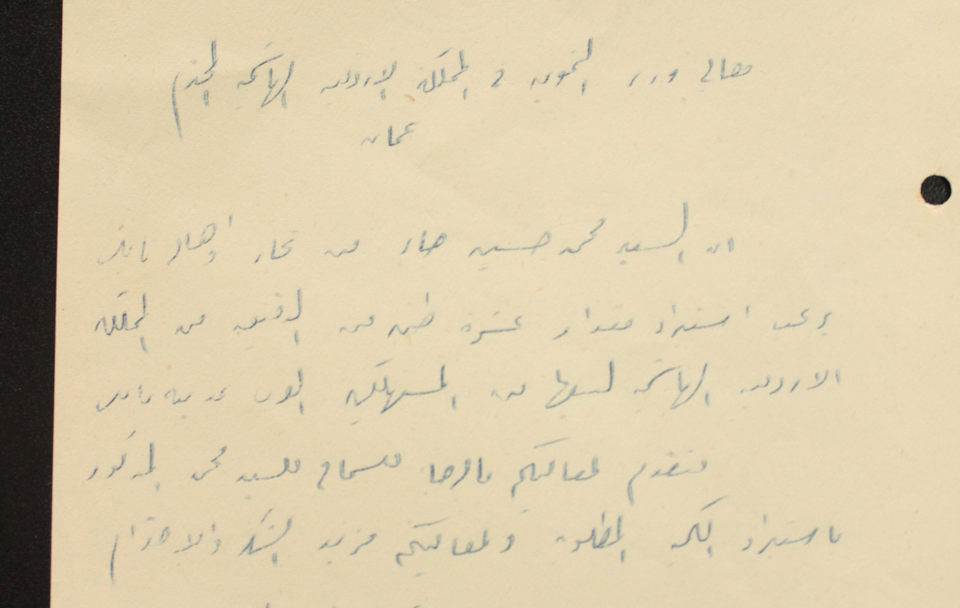 معالي وزير التموين في المملكة الاردنية الهاشمية المحترم
عمان
ان السيد محمد حسين من تجار وأهالي نابلس
يرغب استيراد مقدار عشرة طن من الدقيق من المملكة
الاردنية الهاشمية لبيعها من المستهلكين العرب بمدينة نابلس
فنتقدم لمعاليكم بالرجاء للسماح للسيد محمد المذكور
باستيراد الكمية المطلوبة ولمعاليكم مزيد الشكر والاحترام